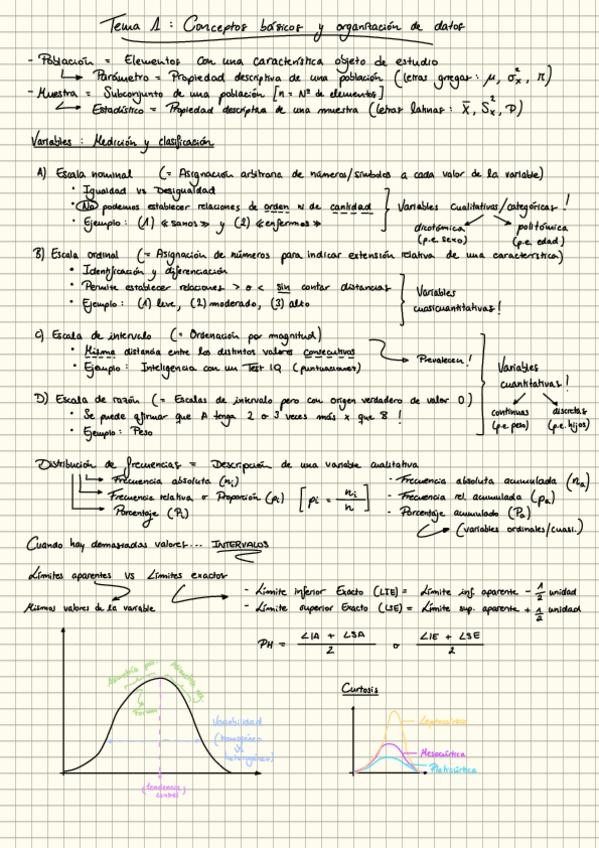 Tema 1 : Conceptos básicos y organización de datos
- Población = Elementos con una característica objeto de estudio
Parámetro = Propiedad descriptiva de una población (letras griegas : μ, σ²x, π)
- Muestra = Subconjunto de una población [n = Nº de elementos]
Estadístico = Propiedad descriptiva de una muestra (letras latinas : X̄, S²x, P)
Variables : Medición y clasificación
A) Escala nominal (= Asignación arbitraria de números/símbolos a cada valor de la variable)
• Igualdad vs Desigualdad
• No podemos establecer relaciones de orden ni de cantidad
Variables cualitativas/categóricas !
• Ejemplo : (1) «sanos» y (2) «enfermos»
dicotómica (p.e. sexo)
politómica (p.e. edad)
B) Escala ordinal (= Asignación de números para indicar extensión relativa de una característica)
• Identificación y diferenciación
• Permite establecer relaciones > o < sin contar distancias
• Ejemplo : (1) leve, (2) moderado, (3) alto
Variables cuasicuantitativas !
C) Escala de intervalo (= Ordenación por magnitud)
• Misma distancia entre los distintos valores consecutivos
Prevalecen !
• Ejemplo : Inteligencia con un Test IQ (puntuaciones)
Variables cuantitativas !
continuas (p.e. peso)
discretas (p.e. hijos)
D) Escala de razón (= Escalas de intervalo pero con origen verdadero de valor 0)
• Se puede afirmar que A tenga 2 o 3 veces más x que B !
• Ejemplo : Peso
Distribución de frecuencias = Descripción de una variable cualitativa
Frecuencia absoluta (ni)
Frecuencia relativa o Proporción (pi) [pi = ni / n]
Porcentaje (Pi)
- Frecuencia absoluta acumulada (na)
- Frecuencia rel. acumulada (pa)
- Porcentaje acumulado (Pa)
(variables ordinales/cuasi.)
Cuando hay demasiados valores... INTERVALOS
Límites aparentes vs Límites exactos
Mismos valores de la variable
- Límite inferior Exacto (LIE) = Límite inf. aparente - 1/2 unidad
- Límite superior Exacto (LSE) = Límite sup. aparente + 1/2 unidad
PM = LIA + LSA / 2 o LIE + LSE / 2
Asimetría pos.
Asimetría neg.
Forma
Variabilidad
(homogéneo
vs
heterogéneo)
(tendencia
central)
Curtosis
Leptocúrtica
Mesocúrtica
Platicúrtica